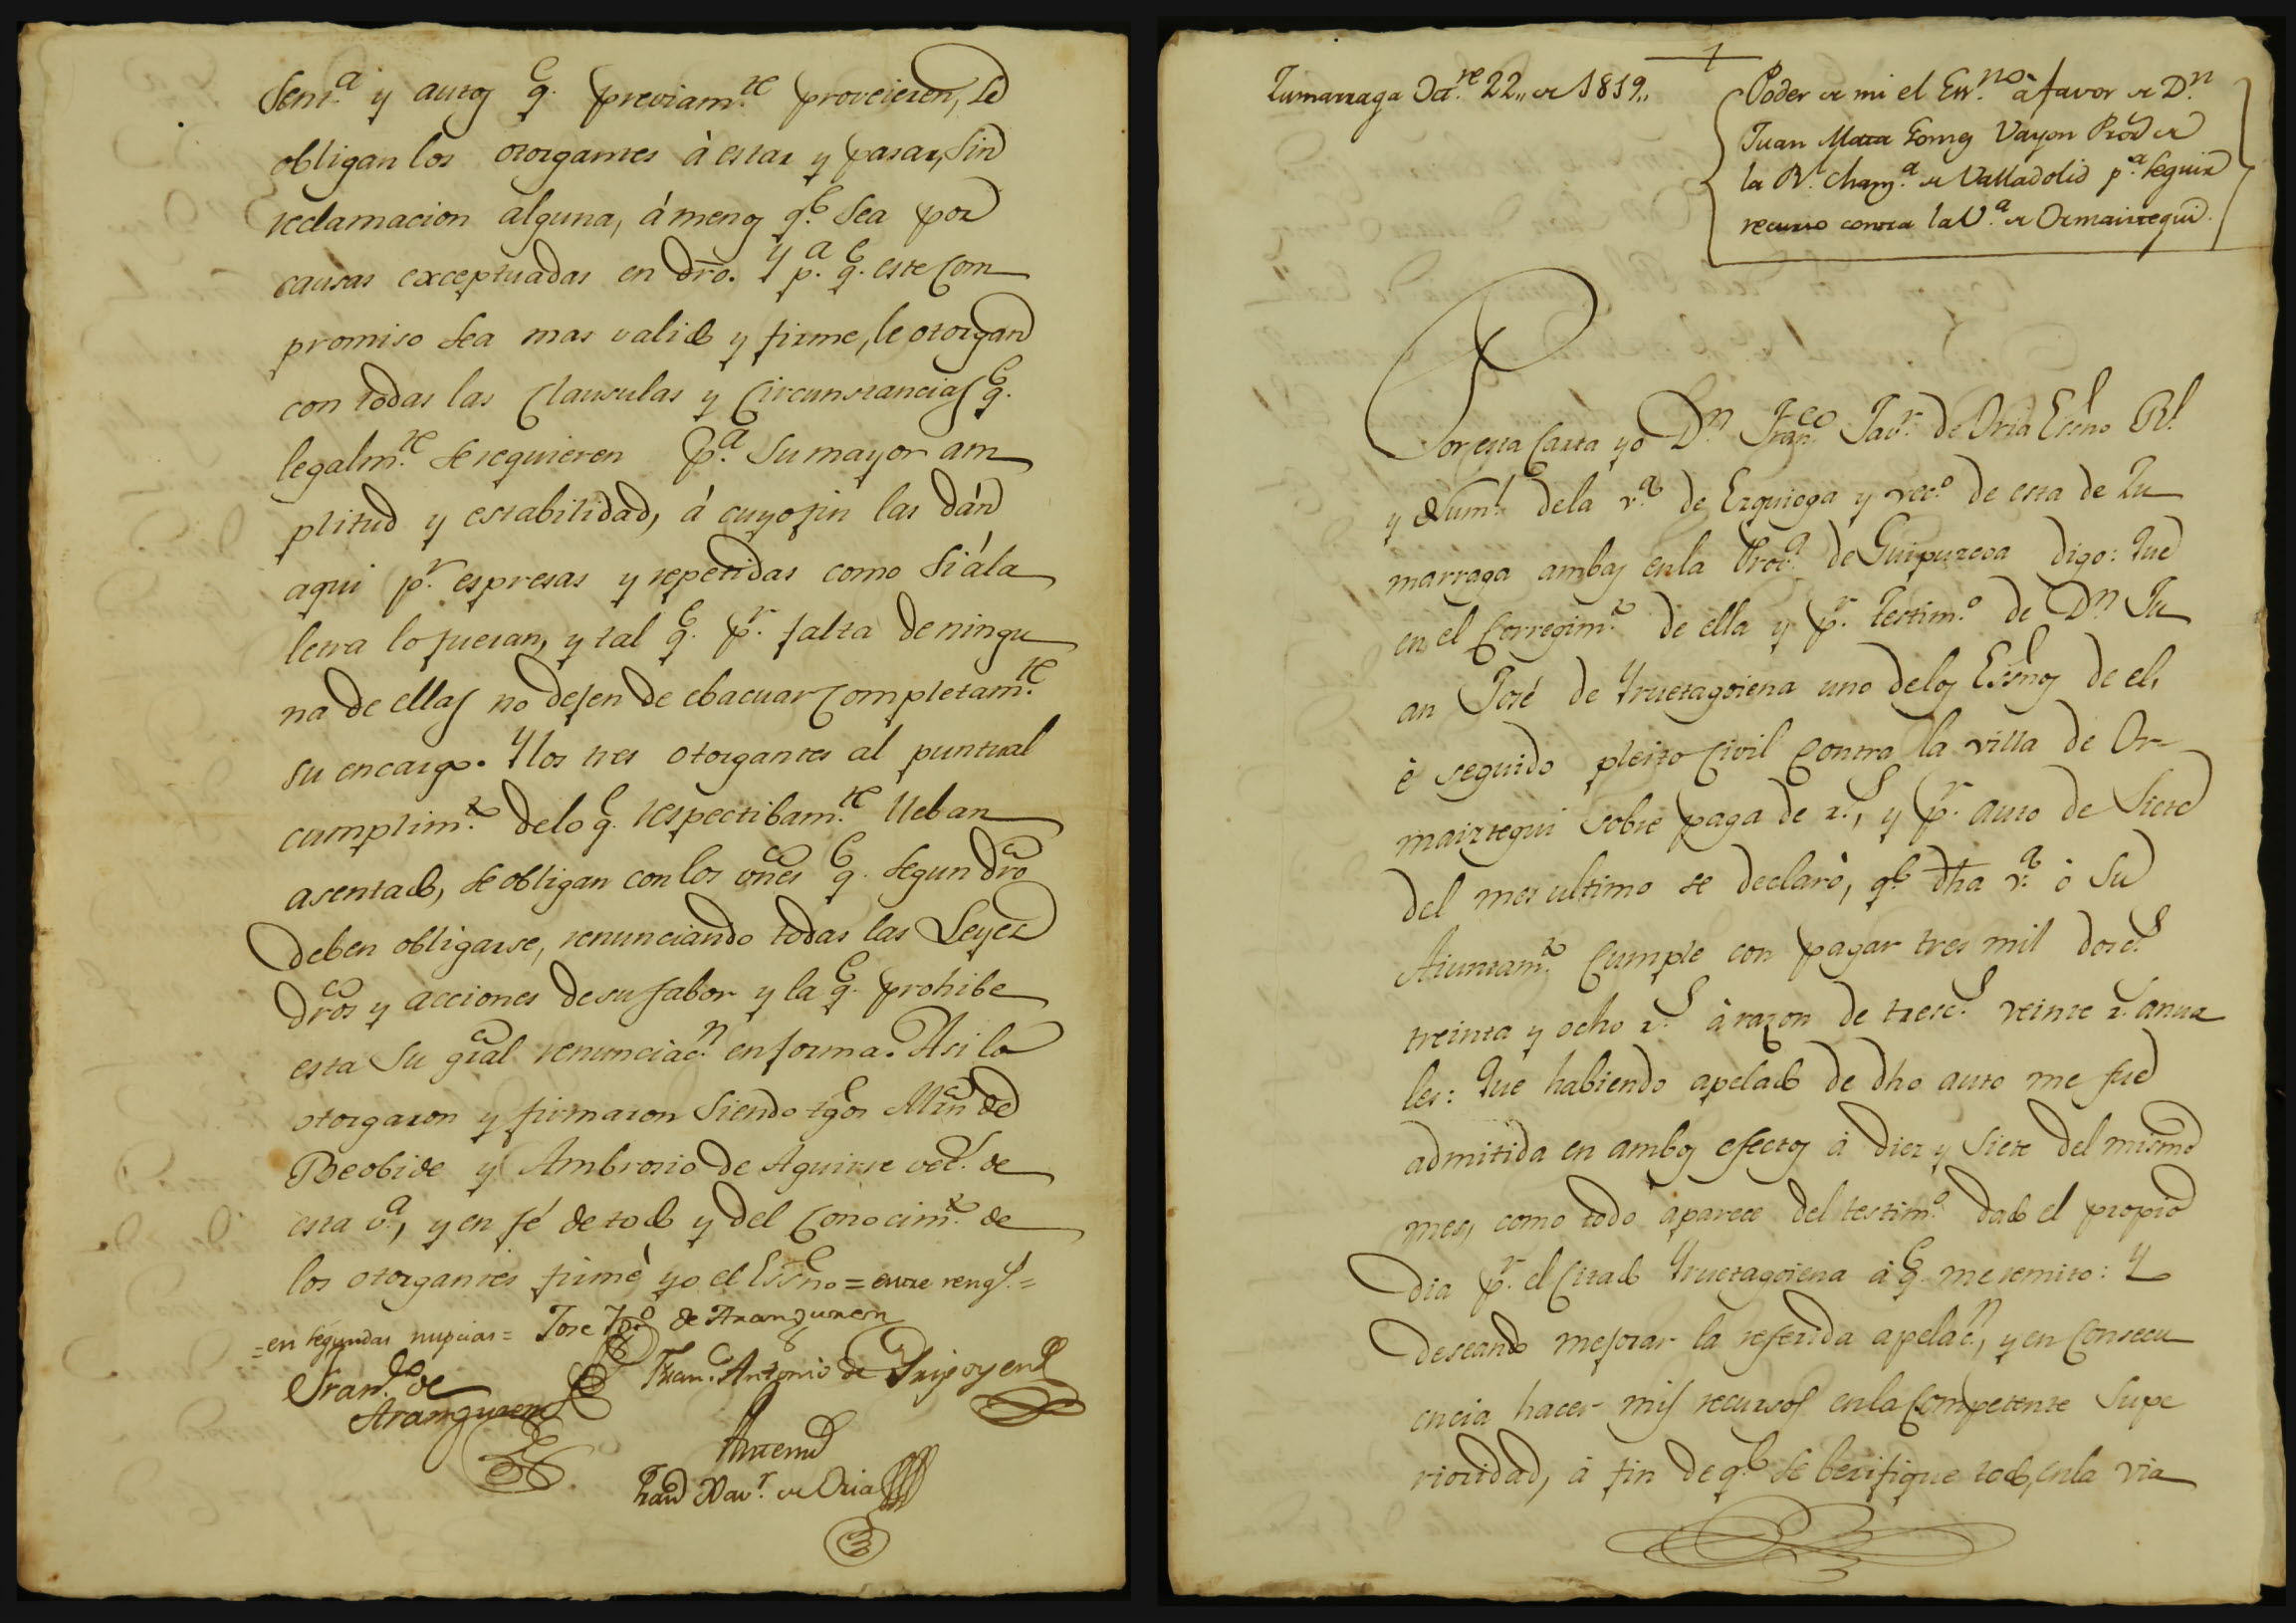 Sent.ª y autos q.e previam.te proveieren, se
obligan los otorgantes à estar y pasar, sin
reclamacion alguna, á menos q.e sea por
causas exceptuadas en dro. Y p.ª q.e este com
promiso sea mas valido y firme, le otorgan
con todas las clausulas y circunstancias q.e
legalm.te se requieren p.ª su mayor am
plitud y estabilidad, á cuyo fin las dán
aqui p.r espresas y repetidas como si á la
letra lo fueran, y tal q.e p.r falta de ningu
na de ellas no dejen de ebacuar completam.te
su encargo. Y los tres otorgantes al puntual
cumplim.to de lo q.e respectibam.te lleban
asentado, se obligan con los vnes q.e segun dro
deben obligarse, renunciando todas las Leyes
dros y acciones de su fabor y la q.e prohibe
esta su gral renunciac.n en forma. Asi lo
otorgaron y firmaron siendo tgos Mrn de
Beobide y Ambrosio de Aguirre vec.s de
esta v.ª, y en fé de todo y del conocim.to de
los otorgantes firmè yo el Essno = entre reng.s =
= en segundas nupcias = Jose Ign.o de Aranguren
Fran.co de
Aranguren
Fran.co Antonio de Iripoyen
Antemi
Fran.co Xav.r de Oria
Zumarraga Oct.re 22,, de 1819,,
Poder de mi el Ess.no à favor de D.n
Juan Mata Gomez Vayon Pror de
la R.l Chanz.ª de Valladolid p.ª seguir
recurso contra la V.ª de Ormaiztegui.
Por esta Carta yo D.n Fran.co Jav.r de Oria Essno R.l
y Num.l de la v.ª de Ezquioga y vec.o de esta de Zu
marraga ambas en la Prov.ª de Guipuzcoa digo: Que
en el Corregim.to de ella y p.r testim.o de D.n Ju
an José de Yruetagoiena uno de los Essnos de el,
è seguido pleito civil contra la villa de Or-
maiztegui sobre paga de r.s, y p.r auto de siete
del mes ultimo se declarò, q.e dha v.ª ò su
Aiuntam.to cumple con pagar tres mil dosc.s
treinta y ocho r.s à razon de tresc.s veinte r.s anua
les: Que habiendo apelado de dho auto me fue
admitida en ambos efectos à diez y siete del mismo
mes, como todo aparece del testim.o dado el propio
dia p.r el citado Yruetagoiena à q.e me remito: Y
deseando mejorar la referida apelac.n, y en consecu
encia hacer mis recursos en la competente supe
rioridad, à fin de q.e se berifique todo, en la via